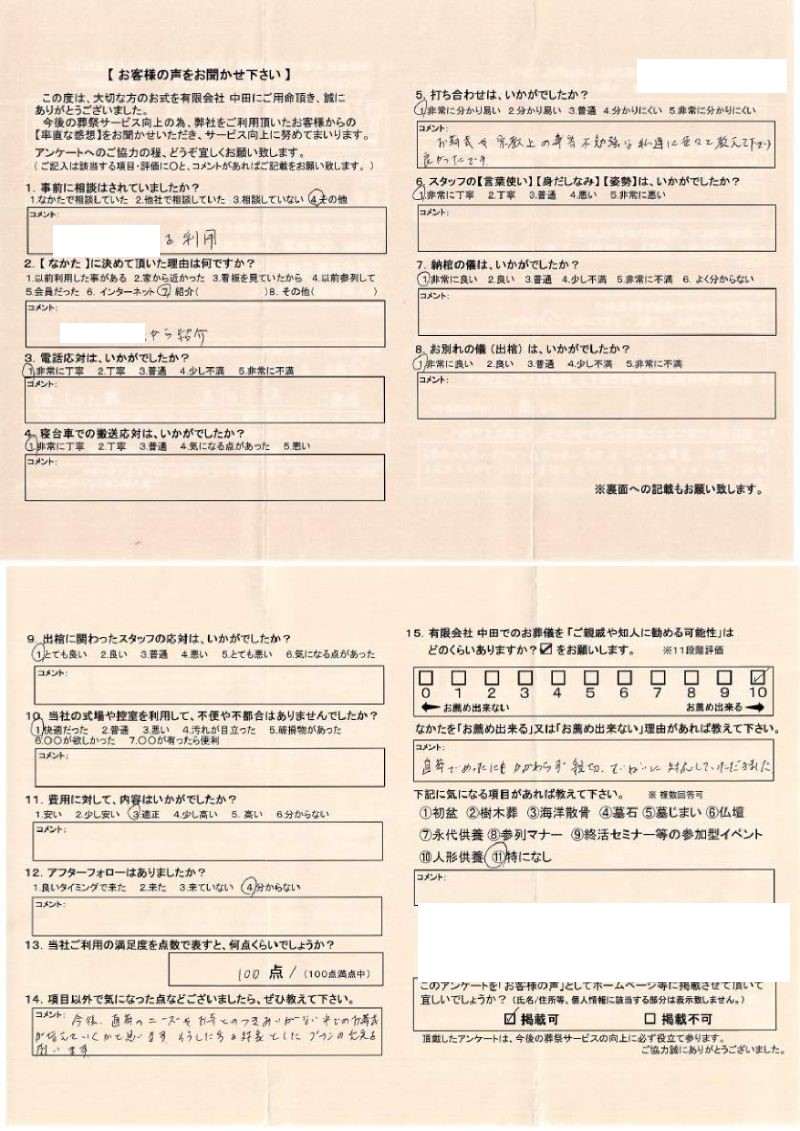 【 お客様の声をお聞かせ下さい 】
この度は、大切な方のお式を有限会社 中田にご用命頂き、誠に
ありがとうございました。
今後の葬祭サービス向上の為、弊社をご利用頂いたお客様からの
【率直な感想】をお聞かせいただき、サービス向上に努めてまいります。
アンケートへのご協力の程、どうぞ宜しくお願い致します。
( ご記入は該当する項目・評価に〇と、コメントがあればご記載をお願い致します。)
1. 事前に相談はされていましたか?
1.なかたで相談していた 2.他社で相談していた 3.相談していない 4.その他
コメント:
を利用
2.【 なかた 】に決めて頂いた理由は何ですか?
1.以前利用した事がある 2.家から近かった 3.看板を見ていたから 4.以前参列して
5.会員だった 6. インターネット 7.紹介( )8. その他( )
コメント:
から紹介
3. 電話応対は、いかがでしたか?
1.非常に丁寧 2.丁寧 3.普通 4.少し不満 5.非常に不満
コメント:
4. 寝台車での搬送応対は、いかがでしたか?
1.非常に丁寧 2.丁寧 3.普通 4.気になる点があった 5.悪い
コメント:
5. 打ち合わせは、いかがでしたか?
1.非常に分かり易い 2.分かり易い 3.普通 4.分かりにくい 5.非常に分かりにくい
コメント:
お葬式や宗教上の事等不勉強な私達に色々と教えて下さり
良かったです
6. スタッフの【言葉使い】【身だしなみ】【姿勢】は、いかがでしたか?
1.非常に丁寧 2.丁寧 3.普通 4.悪い 5.非常に悪い
コメント:
7. 納棺の儀は、いかがでしたか?
1.非常に良い 2.良い 3.普通 4.少し不満 5.非常に不満 6. よく分からない
コメント:
8. お別れの儀 (出棺) は、いかがでしたか?
1.非常に良い 2.良い 3.普通 4.少し不満 5.非常に不満
コメント:
※裏面への記載もお願い致します。
9. 出棺に関わったスタッフの応対は、いかがでしたか?
1.とても良い 2.良い 3.普通 4.悪い 5.とても悪い 6.気になる点があった
コメント:
10. 当社の式場や控室を利用して、不便や不都合はありませんでしたか?
1.快適だった 2.普通 3.悪い 4.汚れが目立った 5.破損物があった
6.〇〇が欲しかった 7.〇〇が有ったら便利
コメント:
11. 費用に対して、内容はいかがでしたか?
1.安い 2.少し安い 3.適正 4.少し高い 5. 高い 6.分からない
コメント:
12. アフターフォローはありましたか?
1.良いタイミングで来た 2.来た 3.来ていない 4.分からない
コメント:
13. 当社ご利用の満足度を点数で表すと、何点くらいでしょうか?
100 点 / (100点満点中)
14. 項目以外で気になった点などございましたら、ぜひ教えて下さい。
コメント: 今後、直葬のニーズやお寺とのつきあいがない中でのお葬式
が増えていくかと思います そうした方を対象としたプランの充実を
思います
15. 有限会社 中田でのお葬儀を「ご親戚や知人に勧める可能性」は
どのくらいありますか?☑をお願いします。 ※11段階評価
0 1 2 3 4 5 6 7 8 9 10
← お薦め出来ない お薦め出来る →
なかたを「お薦め出来る」又は「お薦め出来ない」理由があれば教えて下さい。
コメント:
直葬であったにもかかわらず親切、ていねいに対応していただきました
下記に気になる項目があれば教えて下さい。 ※ 複数回答可
①初盆 ②樹木葬 ③海洋散骨 ④墓石 ⑤墓じまい ⑥仏壇
⑦永代供養 ⑧参列マナー ⑨終活セミナー等の参加型イベント
⑩人形供養 ⑪特になし
コメント:
このアンケートを「お客様の声」としてホームページ等に掲載させて頂いて
宜しいでしょうか? (氏名/住所等、個人情報に該当する部分は表示致しません。)
☑ 掲載可 □ 掲載不可
頂戴したアンケートは、今後の葬祭サービスの向上に必ず役立て参ります。
ご協力誠にありがとうございました。